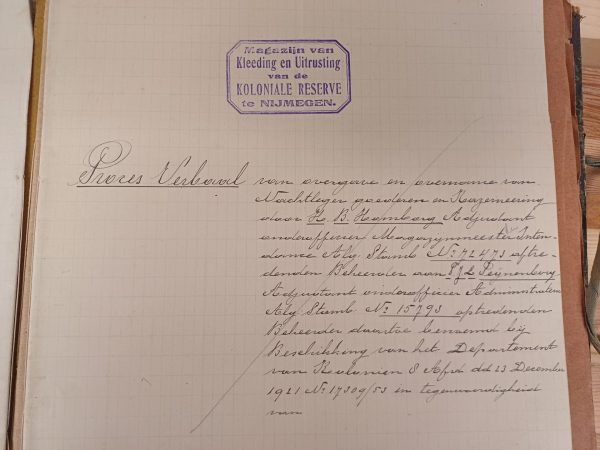 Magazijn van
Kleeding en Uitrusting
van de
KOLONIALE RESERVE
te NIJMEGEN.
Proces Verbaal van overgave en overname van
Nachtleger goederen en Kazerneering
door H. B. Homberg Adjudant
onderofficier Magazijnmeester Inten-
dance Alg. Stamb. No 72473 aftre-
denden Beheerder aan Peijnenborg
Adjudant onderofficier Administrateur
Alg Stamb. No 15793 optredenden
Beheerder daartoe benoemd bij
Beschikking van het Departement
van Kolonien 8 Afd dd 23 December
1921 No 17309/53 in tegenwoordigheid
van